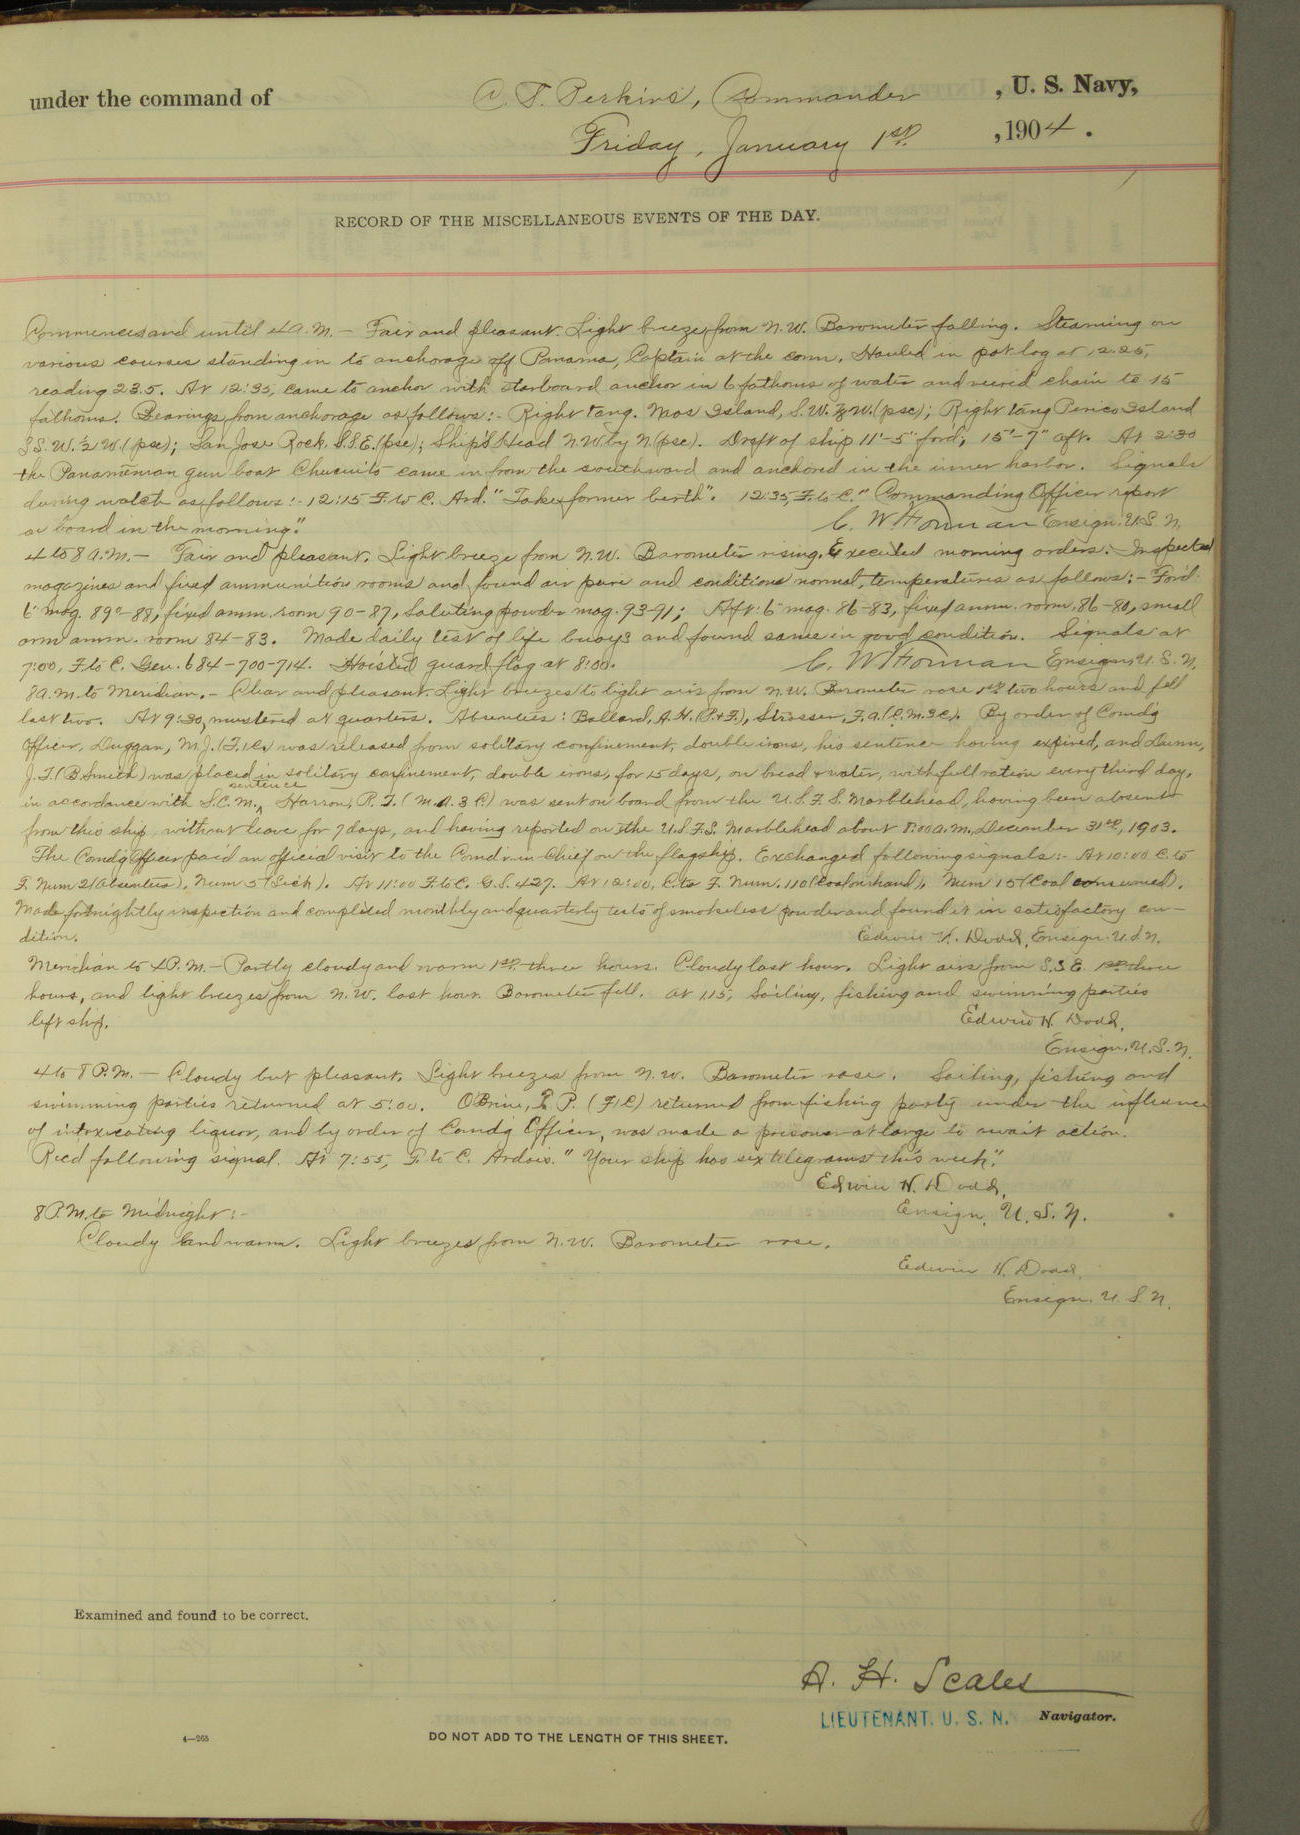 under the command of C. P. Perkins, Commander, U. S. Navy,
Friday, January 1st, 1904.
RECORD OF THE MISCELLANEOUS EVENTS OF THE DAY.
Commences and until 4 A.M. — Fair and pleasant. Light breeze from N.W. Barometer falling. Steaming on
various courses standing in to anchorage off Panama, Captain at the conn. Hauled in pat log at 12:25,
reading 23.5. At 12:35, came to anchor with starboard anchor in 6 fathoms of water and veered chain to 15
fathoms. Bearings from anchorage as follows:- Right tang. Naos Island, S.W.½W.(psc); Right tang Perico Island
S.S.W.½W(psc); San Jose Rock, S.S.E.(psc); Ship's Head N.W. by N(psc). Draft of ship 11'-5" for'd; 15'-7" aft. At 2:30
the Panameman gun boat Chucuito came in from the southward and anchored in the inner harbor. Signals
during watch as follows:- 12:15 F. to C. Ard. "Take former berth". 12:35, F. to C. "Commanding Officer report
on board in the morning."
C. W. Forman Ensign. U.S.N.
4 to 8 A.M. — Fair and pleasant. Light breeze from N.W. Barometer rising. Executed morning orders. Inspected
magazines and fixed ammunition rooms and found air pure and conditions normal, temperatures as follows:- For'd
6" mag. 89°-88, fixed amm. room 90-87, Saluting powder mag. 93-91; Aft 6" mag. 86-83, fixed amm. room, 86-80, small
arm amm. room 84-83. Made daily test of life buoys and found same in good condition. Signals at
7:00, F. to C. Gen. 684-700-714. Hoisted guard flag at 8:00.
C. W. Forman Ensign, U.S.N.
8 A.M. to Meridian. — Clear and pleasant. Light breezes to light airs from N.W. Barometer rose 1st two hours and fell
last two. At 9:30, mustered at quarters. Absentees: Ballard, A.H. (P.&F.), Strosser, F.A. (C.M.3C.). By order of Comd'g
Officer, Duggan, M.J. (F.1C.) was released from solitary confinement, double irons, his sentence having expired, and Dunn,
J.T. (B.Smith) was placed in solitary confinement, double irons, for 15 days, on bread & water, with full ration every third day,
in accordance with S.C.M. sentence, Harron, P.T. (M.A.3C) was sent on board from the U.S.F.S. Marblehead, having been absent
from this ship without leave for 7 days, and having reported on the U.S.F.S. Marblehead about 8:00 a.m., December 31st, 1903.
The Comd'g Officer paid an official visit to the Comd'r-in-Chief on the flagship. Exchanged following signals:- At 10:00 C. to
F. Num 2 (Absentees), Num 5 (Sick). At 11:00 F. to C. G.S. 427. At 12:00, C. to F. Num. 110 (Coal on hand), Num 15 (Coal consumed).
Made fortnightly inspection and completed monthly and quarterly tests of smokeless powder and found it in satisfactory con-
dition.
Edwin H. Dodd, Ensign. U.S.N.
Meridian to 4 P.M. — Partly cloudy and warm 1st three hours. Cloudy last hour. Light airs from S.S.E. 1st three
hours, and light breezes from N.W. last hour. Barometer fell. At 1:15, Sailing, fishing and swimming parties
left ship.
Edwin H. Dodd,
Ensign. U.S.N.
4 to 8 P.M. — Cloudy but pleasant. Light breezes from N.W. Barometer rose. Sailing, fishing and
swimming parties returned at 5:00. O'Brine, P. (F1C) returned from fishing party under the influence
of intoxicating liquor, and by order of Comdg Officer, was made a prisoner at large to await action.
Rec'd following signal. At 7:55, F. to C. Ardois. "Your ship has six telegrams this week".
Edwin H. Dodd,
Ensign, U.S.N.
8 P.M. to Midnight:-
Cloudy and warm. Light breezes from N.W. Barometer rose.
Edwin H. Dodd,
Ensign. U.S.N.
Examined and found to be correct.
A. H. Scales
LIEUTENANT. U. S. N. Navigator.
4—265
DO NOT ADD TO THE LENGTH OF THIS SHEET.